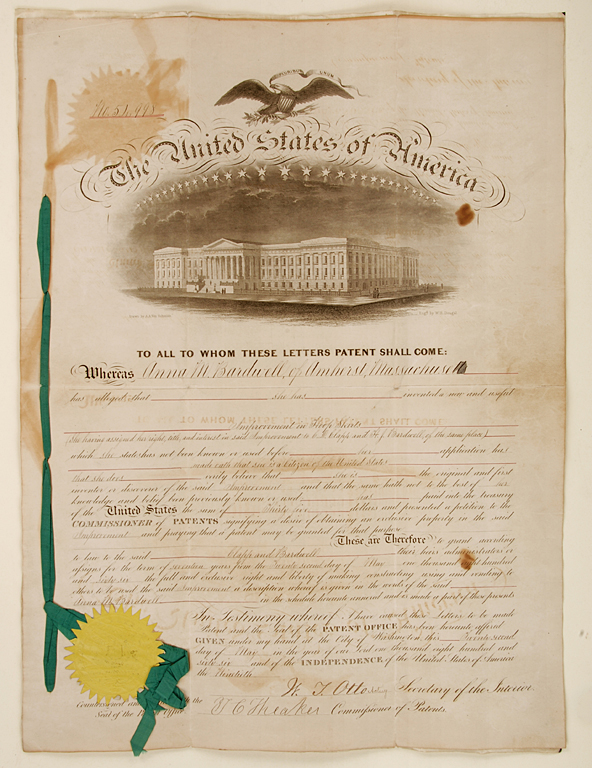 E PLURIBUS UNUM
The United States of America
TO ALL TO WHOM THESE LETTERS PATENT SHALL COME:
Whereas Anna M. Bardwell, of Amherst, Massachusetts
has alleged that she has invented a new and useful
Improvement in
(She having assigned her right, title, and interest in said Improvement to Clapp and Bardwell, of the same place)
which she states has not been known or used before her application has
made oath that she is a Citizen of the United States
that she does verily believe that she is the original and first
inventor or discoverer of the said Improvement and that the same hath not to the best of her
knowledge and belief been previously known or used has paid into the treasury
of the United States the sum of Thirty five dollars and presented a petition to the
COMMISSIONER of PATENTS signifying a desire of obtaining an exclusive property in the said
Improvement and praying that a patent may be granted for that purpose
These are Therefore to grant according
to law to the said Clapp and Bardwell their heirs administrators or
assigns for the term of seventeen years from the Twenty second day of May one thousand eight hundred
and Sixty six the full and exclusive right and liberty of making constructing using and vending to
others to be used the said Improvement a description whereof is given in the words of the said
Anna M. Bardwell in the schedule hereunto annexed and is made a part of these presents
In Testimony whereof I have caused these Letters to be made
Patent and the Seal of the PATENT OFFICE has been hereunto affixed
GIVEN under my hand at the City of Washington this Twenty second
day of May in the year of our Lord one thousand eight hundred and
sixty six and of the INDEPENDENCE of the United States of America
the Ninetieth.
W. T. Otto Secretary of the Interior.
Countersigned and the
Seal of the Office
T C Theaker Commissioner of Patents.